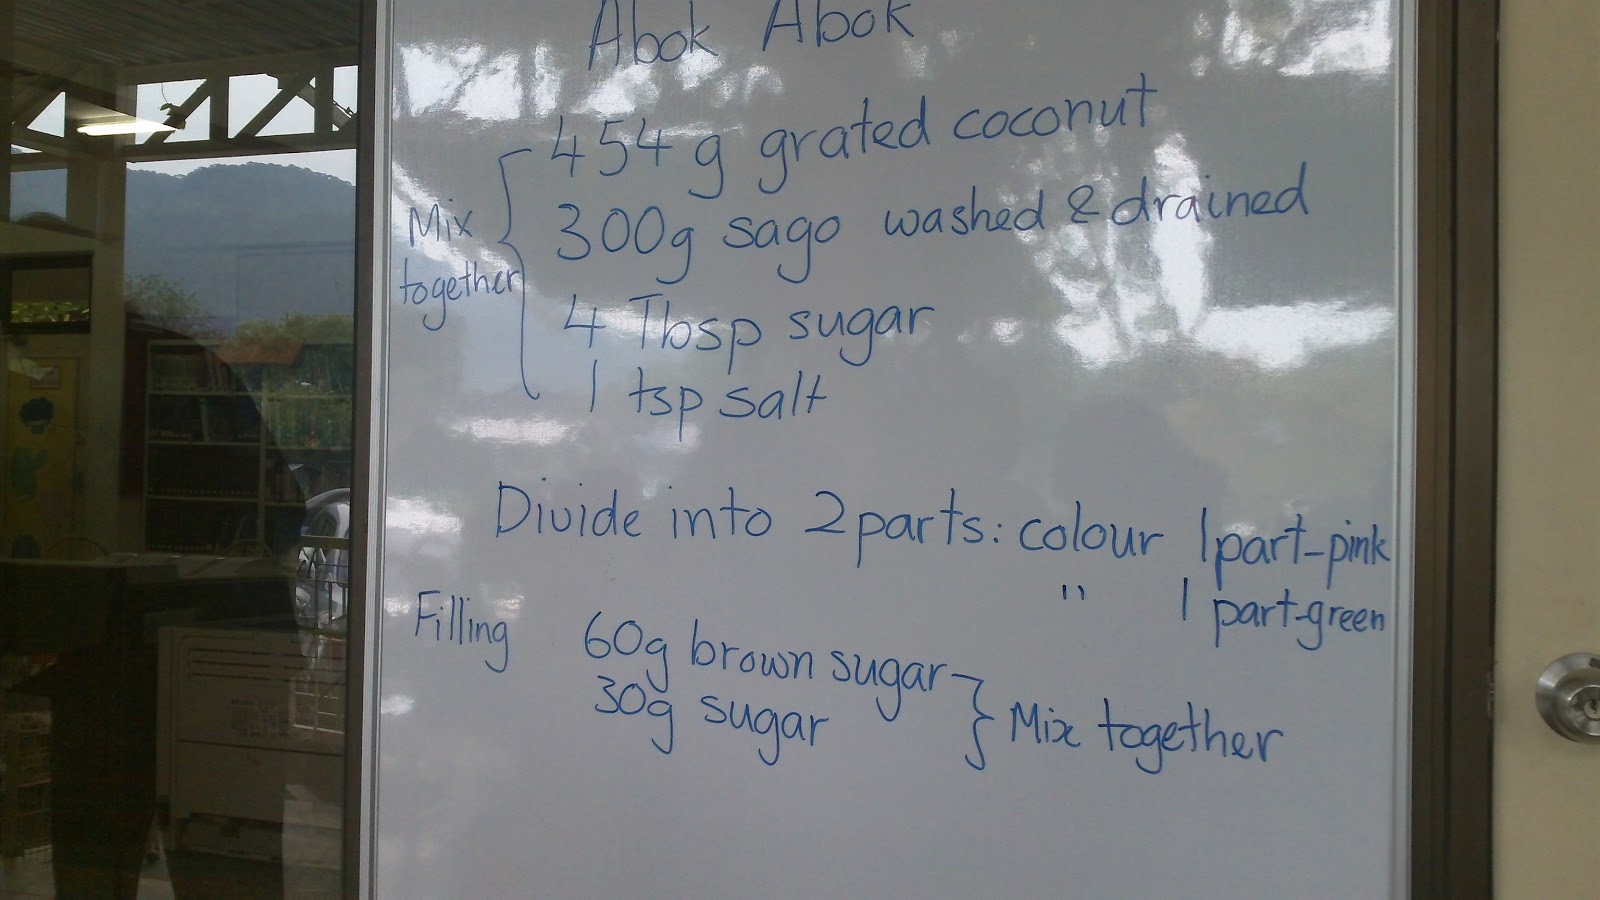 Abok Abok
454g grated coconut
300g sago washed & drained
4 Tbsp sugar
1 tsp salt
Mix
together
Divide into 2 parts: colour 1 part-pink
" 1 part-green
Filling 60g brown sugar
30g sugar
Mix together